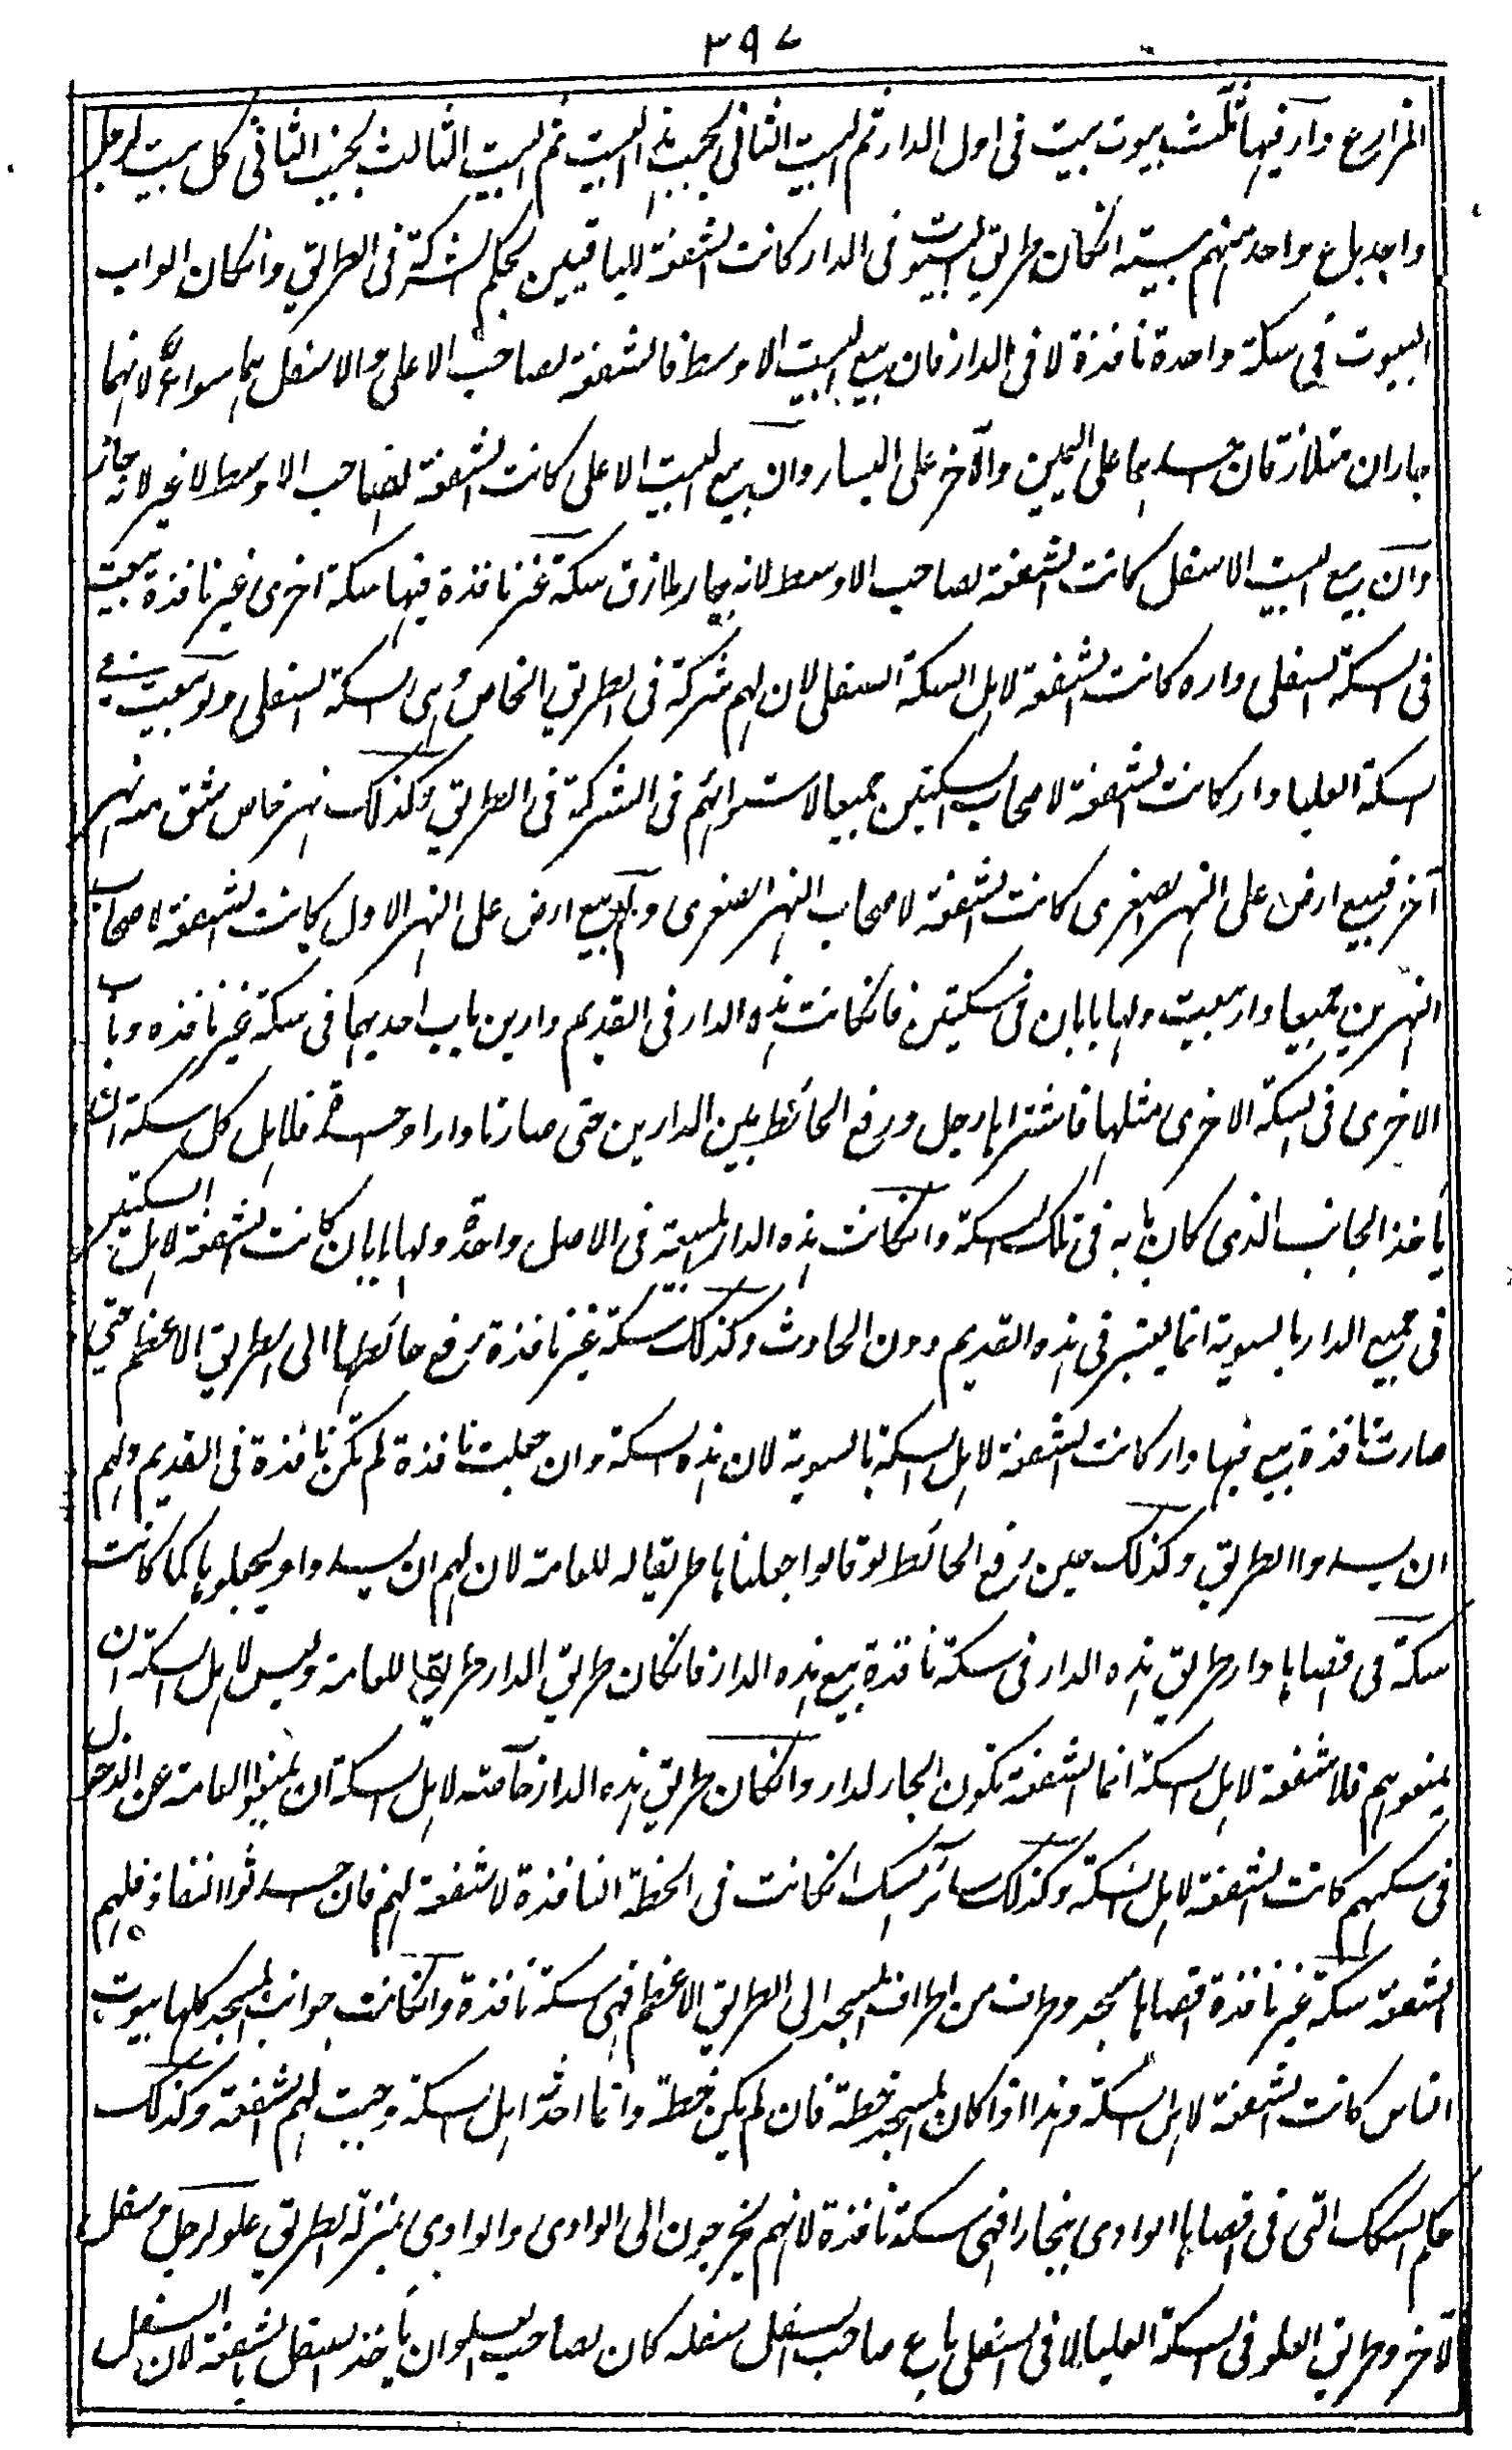 ٣٩٧
المزارع دار فيها ثلث بيوت بيت فى اول الدار ثم البيت الثانى بجنب هذا البيت ثم البيت الثالث بجنب الثانى كل بيت لرجل
واحد باع واحد منهم بيته انكان طريق البيوت فى الدار كانت الشفعة للباقيين بحكم الشركة فى الطريق وانكان ابواب
البيوت فى سكة واحدة نافذة لا فى الدار فان بيع البيت الاوسط فالشفعة لصاحب الاعلى والاسفل هما سواء لانهما
جاران متلازقان احدهما على اليمين والآخر على اليسار وان بيع البيت الاعلى كانت الشفعة لصاحب الاوسط لا غير لانه جار
وان بيع البيت الاسفل كانت الشفعة لصاحب الاوسط لانه جار ملازق سكة غير نافذة فيها سكة اخرى غير نافذة بيعت
فى السكة السفلى داره كانت الشفعة لاهل السكة السفلى لان لهم شركة فى الطريق الخاص وهى السكة السفلى ولو بيعت فى
السكة العليا دار كانت الشفعة لاصحاب السكتين جميعا لاستوائهم فى الشركة فى الطريق وكذلك نهر خاص منشق منه نهر
آخر فبيع ارض على النهر الصغرى كانت الشفعة لاصحاب النهر الصغرى ولو بيع ارض على النهر الاول كانت الشفعة لاصحاب
النهرين جميعا دار بيعت ولها بابان فى سكتين فانكانت هذه الدار فى القديم دارين باب احديهما فى سكة غير نافذه وباب
الاخرى فى السكة الاخرى مثلها فاشتراها رجل ورفع الحائط بين الدارين حتى صارتا دارا واحدة فلاهل كل سكة ان
يأخذ الجانب الذى كان بابه فى تلك السكة وانكانت هذه الدار المبيعة فى الاصل واحدة ولها بابان كانت الشفعة لاهل السكتين
فى جميع الدار بالسوية انما يعتبر فى هذه القديم دون الحادث وكذلك سكة غير نافذة رفع حائطها الى الطريق الاعظم حتى
صارت نافذة بيع فيها دار كانت الشفعة لاهل السكة بالسوية لان هذه السكة وان جعلت نافذة لم تكن نافذة فى القديم ولهم
ان يسدوا الطريق وكذلك حين رفع الحائط لو قالوا جعلناها طريقا له للعامة لان لهم ان يسدوا ويجعلوها كما كانت
سكة فى قصاها دار طريق هذه الدار فى سكة نافذة بيع هذه الدار فانكان طريق الدار طريقا للعامة وليس لاهل السكة ان
يمنعوهم فلا شفعة لاهل السكة انما الشفعة تكون الجار لدار وانكان طريق هذه الدار خاصته لاهل السكة ان يمنعوا العامة عن الدخول
فى سكهم كانت الشفعة لاهل السكة وكذلك سائر السكك انكانت فى الخطة النافذة لا شفعة لهم فان احدثوا النفاذ فلهم
الشفعة سكة غير نافذة قصاها مسجد وطرف من اطراف المسجد الى الطريق الاعظم فهى سكة نافذة وانكانت جوانب المسجد كلها بيوت
الناس كانت الشفعة لاهل السكة وهذا اذا كان المسجد خطة فان لم يكن خطة وانما احدثه اهل السكة وجبت لهم الشفعة وكذلك
حكم السكك التى فى قصاها الوادى ببخارا فهى سكة نافذة لانهم يخرجون الى الوادى والوادى بمنزلة الطريق علو لرجل وسفل
لآخر وطريق العلو فى السكة العليا لا فى السفلى باع صاحب السفل سفله كان لصاحب العلو ان يأخذ السفل بالشفعة لان السفل